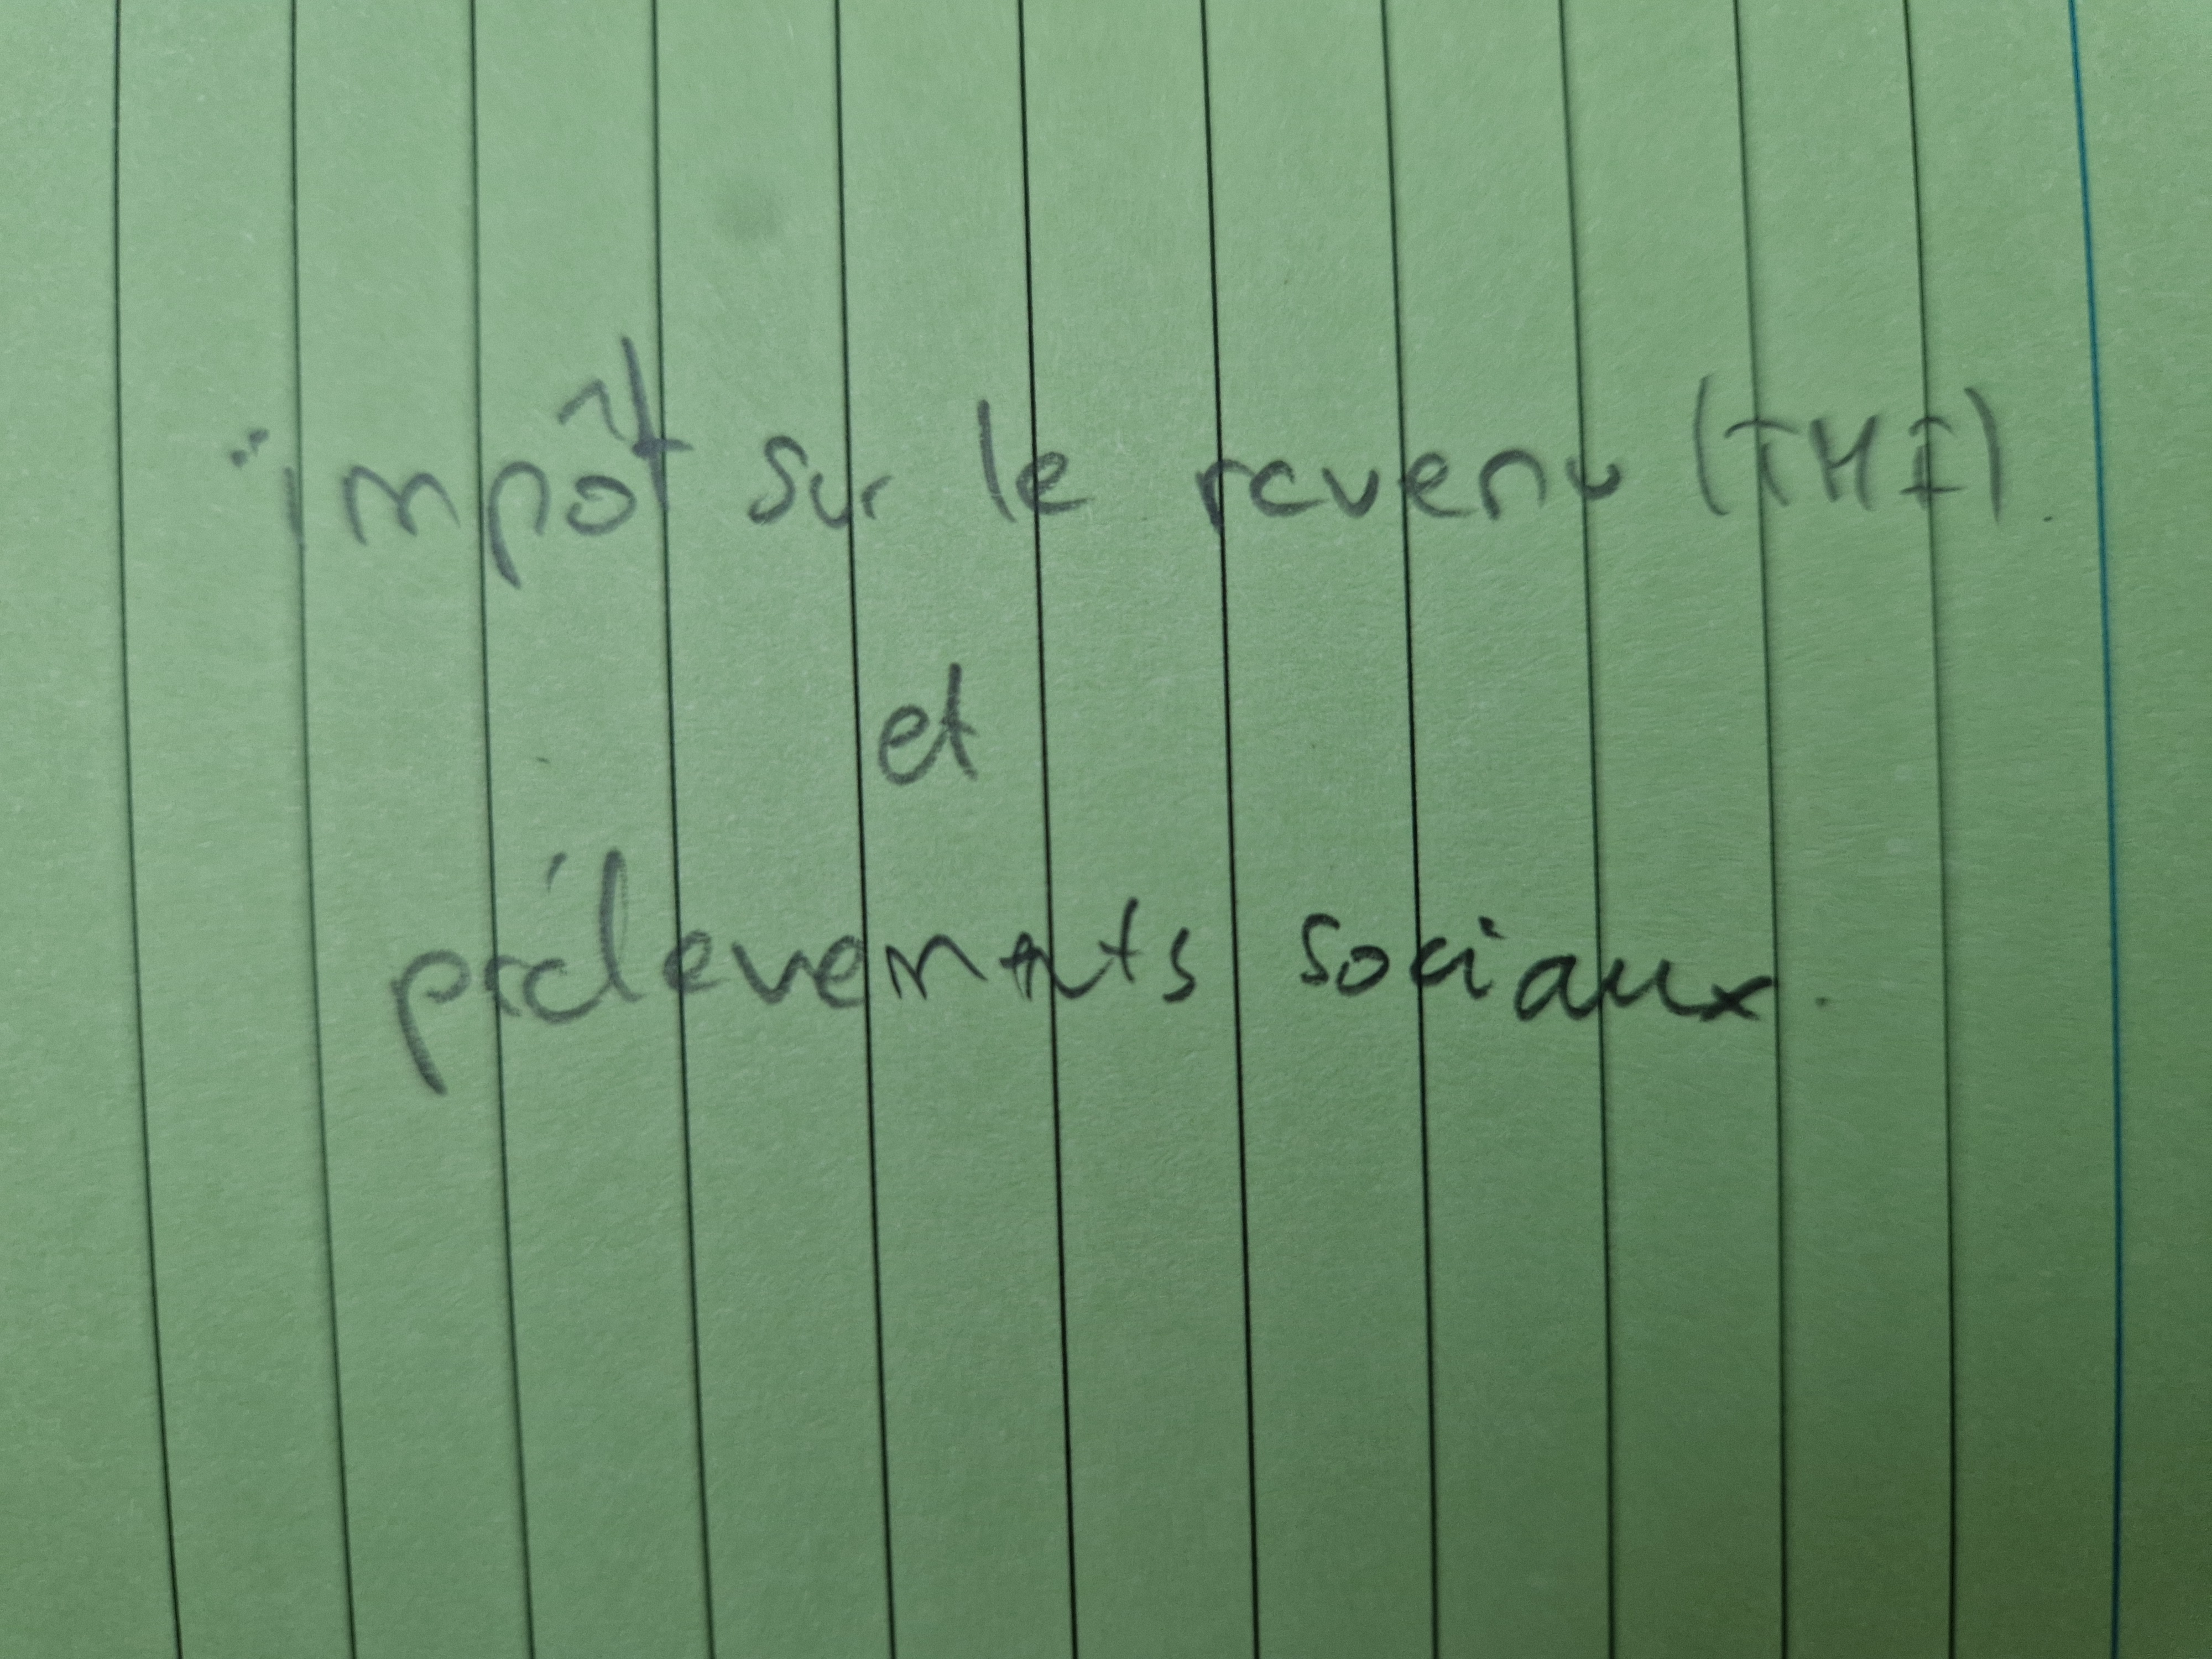 impôt sur le revenu (TMI)
et
prélevements sociaux.